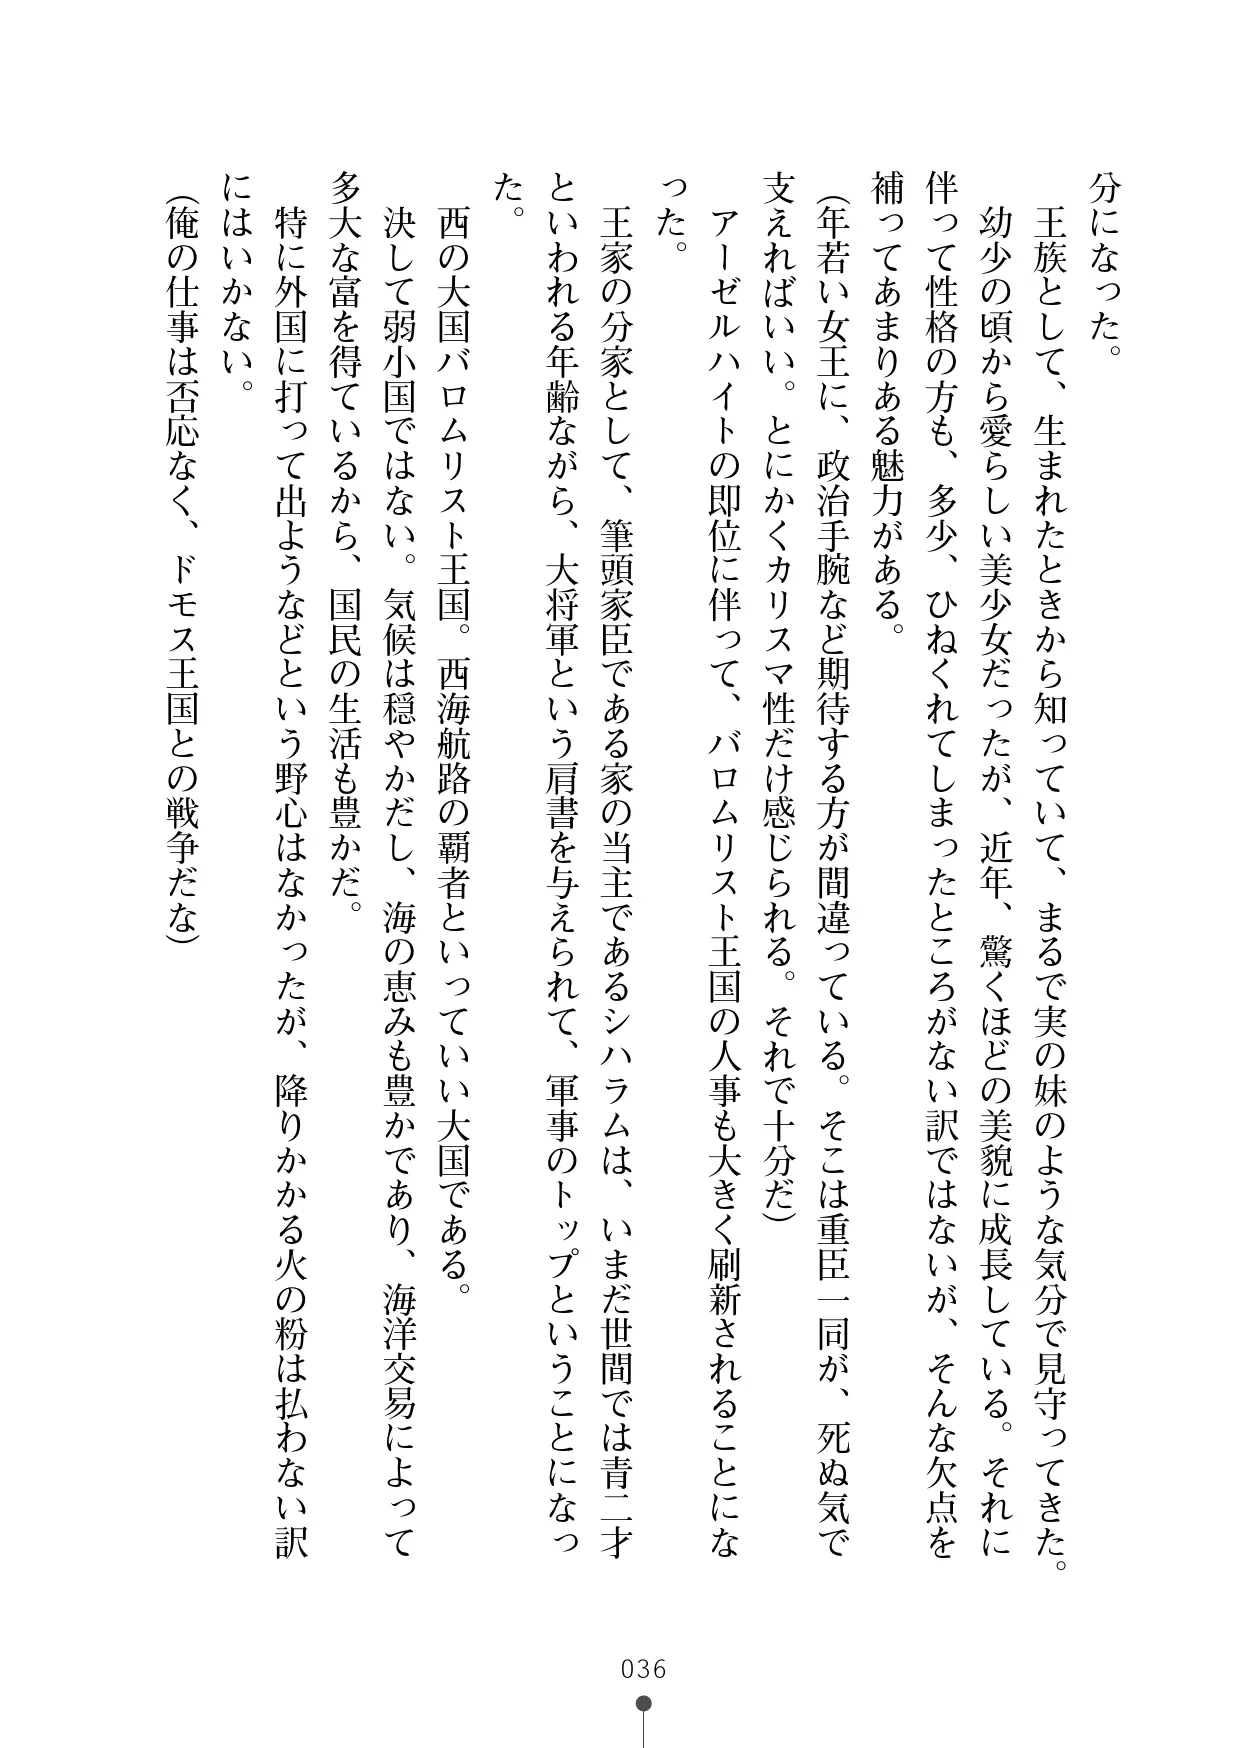 分になった。
　王族として、生まれたときから知っていて、まるで実の妹のような気分で見守ってきた。
　幼少の頃から愛らしい美少女だったが、近年、驚くほどの美貌に成長している。それに
伴って性格の方も、多少、ひねくれてしまったところがない訳ではないが、そんな欠点を
補ってあまりある魅力がある。
（年若い女王に、政治手腕など期待する方が間違っている。そこは重臣一同が、死ぬ気で
支えればいい。とにかくカリスマ性だけ感じられる。それで十分だ）
　アーゼルハイトの即位に伴って、バロムリスト王国の人事も大きく刷新されることにな
った。
　王家の分家として、筆頭家臣である家の当主であるシハラムは、いまだ世間では青二才
といわれる年齢ながら、大将軍という肩書を与えられて、軍事のトップということになっ
た。
　西の大国バロムリスト王国。西海航路の覇者といっていい大国である。
　決して弱小国ではない。気候は穏やかだし、海の恵みも豊かであり、海洋交易によって
多大な富を得ているから、国民の生活も豊かだ。
　特に外国に打って出ようなどという野心はなかったが、降りかかる火の粉は払わない訳
にはいかない。
（俺の仕事は否応なく、ドモス王国との戦争だな）
036